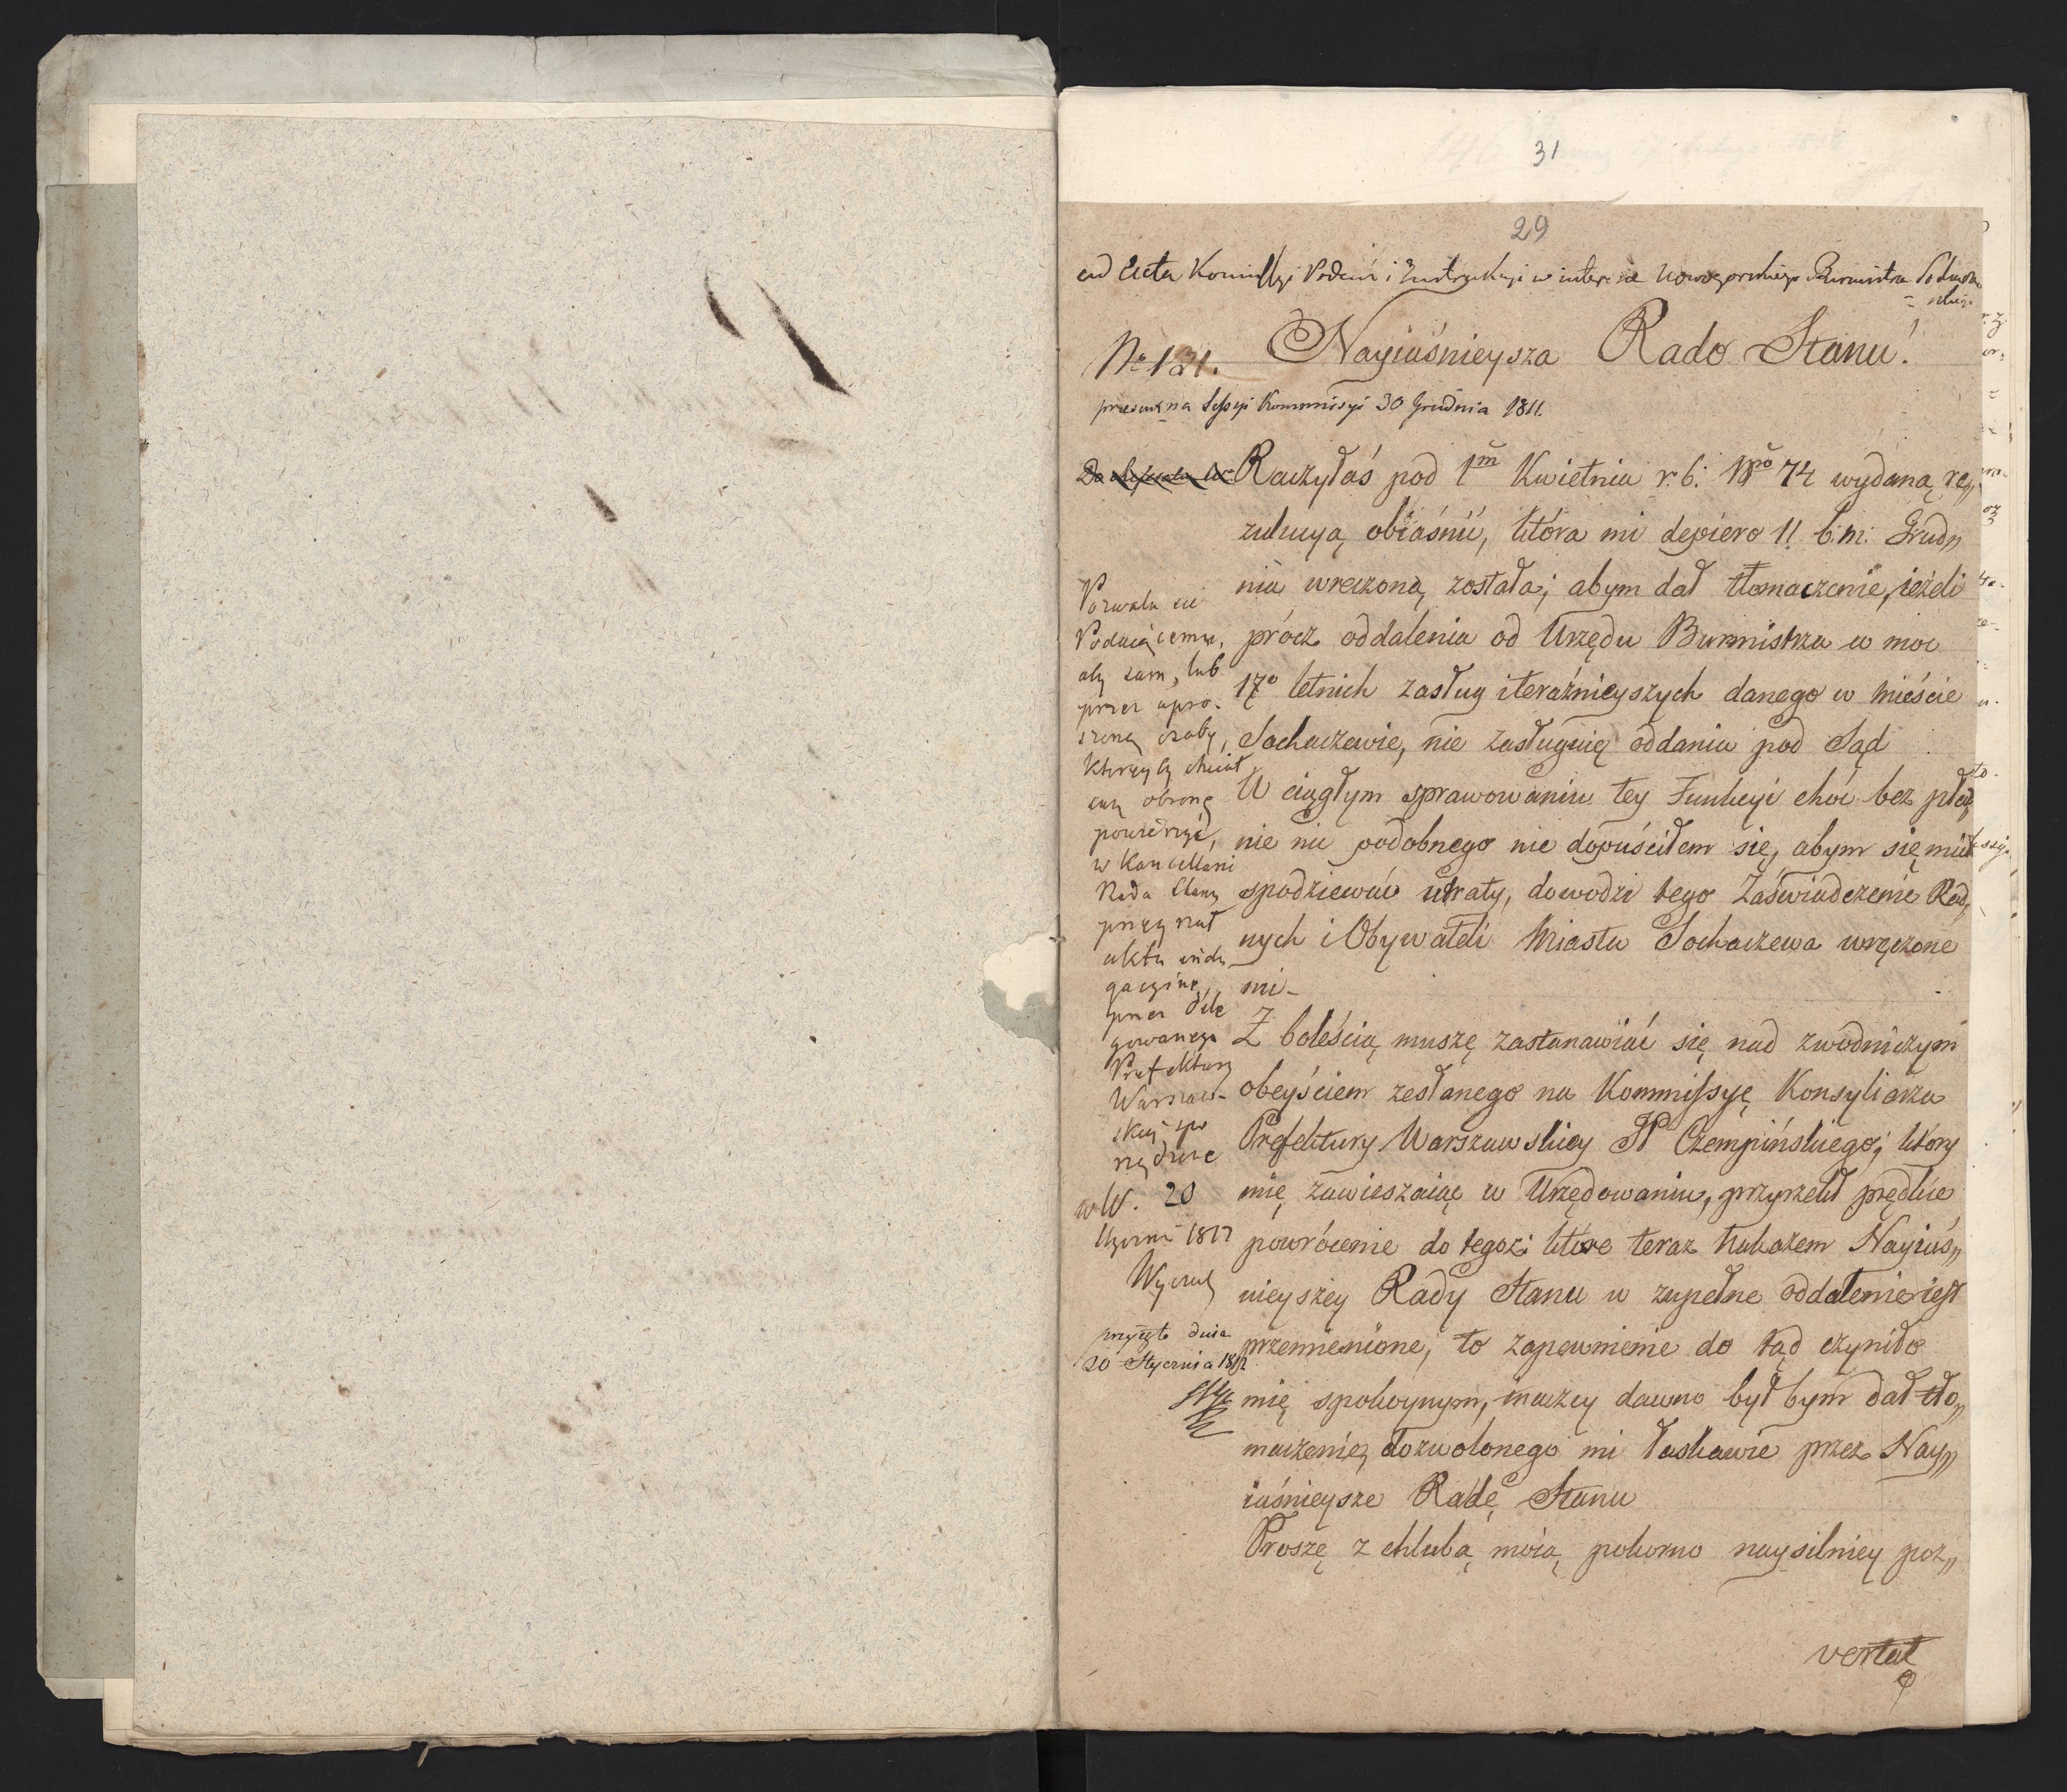 31
29
ad Acta Kommissyi Podań i Instrukcyi w interesie Nowogorskiego Burmistrza
Nayiaśnieysza Rado Stanu!
No 121.
na Sessyi Kommissyi 30 Grudnia 1811.
Raczyłaś pod 1m Kwietnia r. b: Nro 74 wydaną re„
zulucyą obiaśnić, która mi depiero 11 b. m: Grud„
nia wreczoną została; abym dał tłomaczenie, ieżeli
prócz oddalenia od Urzędu Burmistrza w moc
17o letnich zasług i teraźnieyszych danego w Mieście
Sochaczewie, nie zasługuię oddania pod Sąd
W ciągłym sprawowaniu tey Funkcyi choć bez płac„
nie nic podobnego nie dopuściłem się, abym się miał
spodziewać utraty, dowodzi tego Zaświadczenie Rad„
nych i Obywateli Miasta Sochaczewa wręczone
mi –
Z boleścią muszę zastanawiać się nad zwodniczym
obeyściem zesłanego na Kommissyę Konsyliarza
Prefektury Warszawskiey JP Czempińskiego; ktory
mię zawieszaiąc w Urzędowaniu, przyrzekł prędkie
powrócenie do tegoż; które teraz Nakazem Nayiaś„
nieyszey Rady Stanu w zupełne oddalenie iest
przemienione; to zapewnienie do tąd czyniło
mię spokoynym, inaczey dawno był bym dał tło„
maczenie, dozwolonego mi łaskawie przez Nay„
iaśnieysze Radę Stanu
Proszę z chlubą moią pokorno naysilniey poz„
vertat
Pozwala się
Podaiącemu,
aby sam, lub
przez upro-
szoną osobę,
którąby chciał
swą obronę
powierzyć,
w Kancellarii
Rada Stanu
przeyrzał
akta inda
gacyine,
przez dele
gowanego
Prefektury
Warszaw-
skiey spo
rządzone
w W. 20
Stycznia 1812
przyięto dnia
20 Stycznia 1812